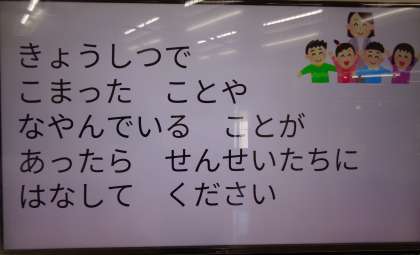 きょうしつで
こまった　ことや
なやんでいる　ことが
あったら　せんせいたちに
はなして　ください